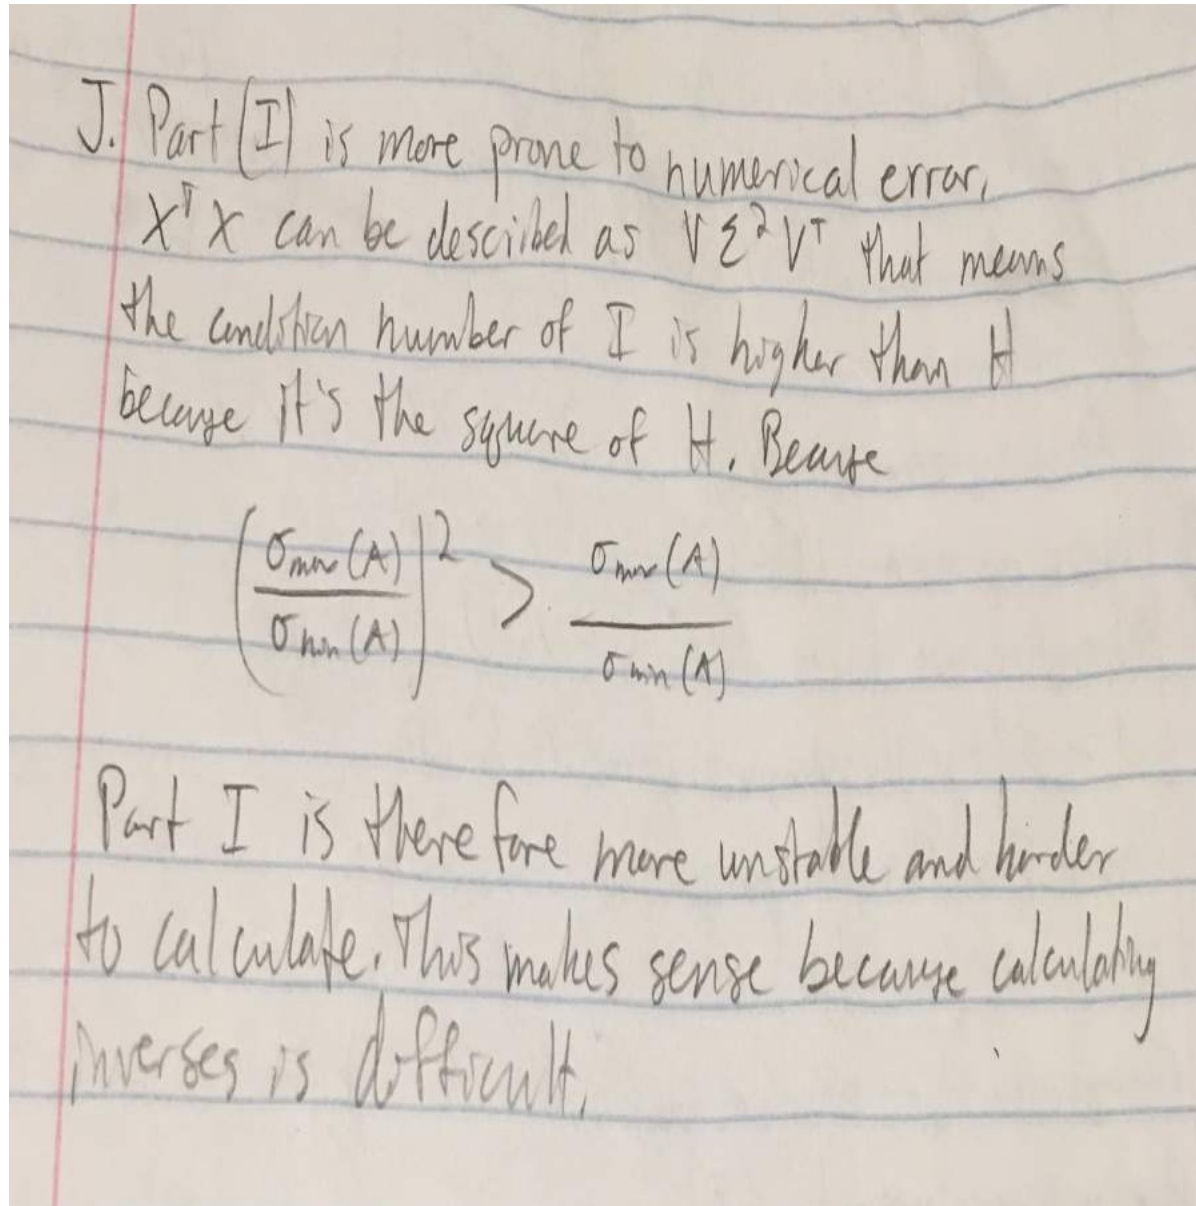 J. Part (I) is more prone to numerical error,
XᵀX can be described as VΣ²Vᵀ that means
the condition number of I is higher than H
because it's the square of H. Because
(σmax(A) / σmin(A))² > σmax(A) / σmin(A)
Part I is therefore more unstable and harder
to calculate. This makes sense because calculating
inverses is difficult.